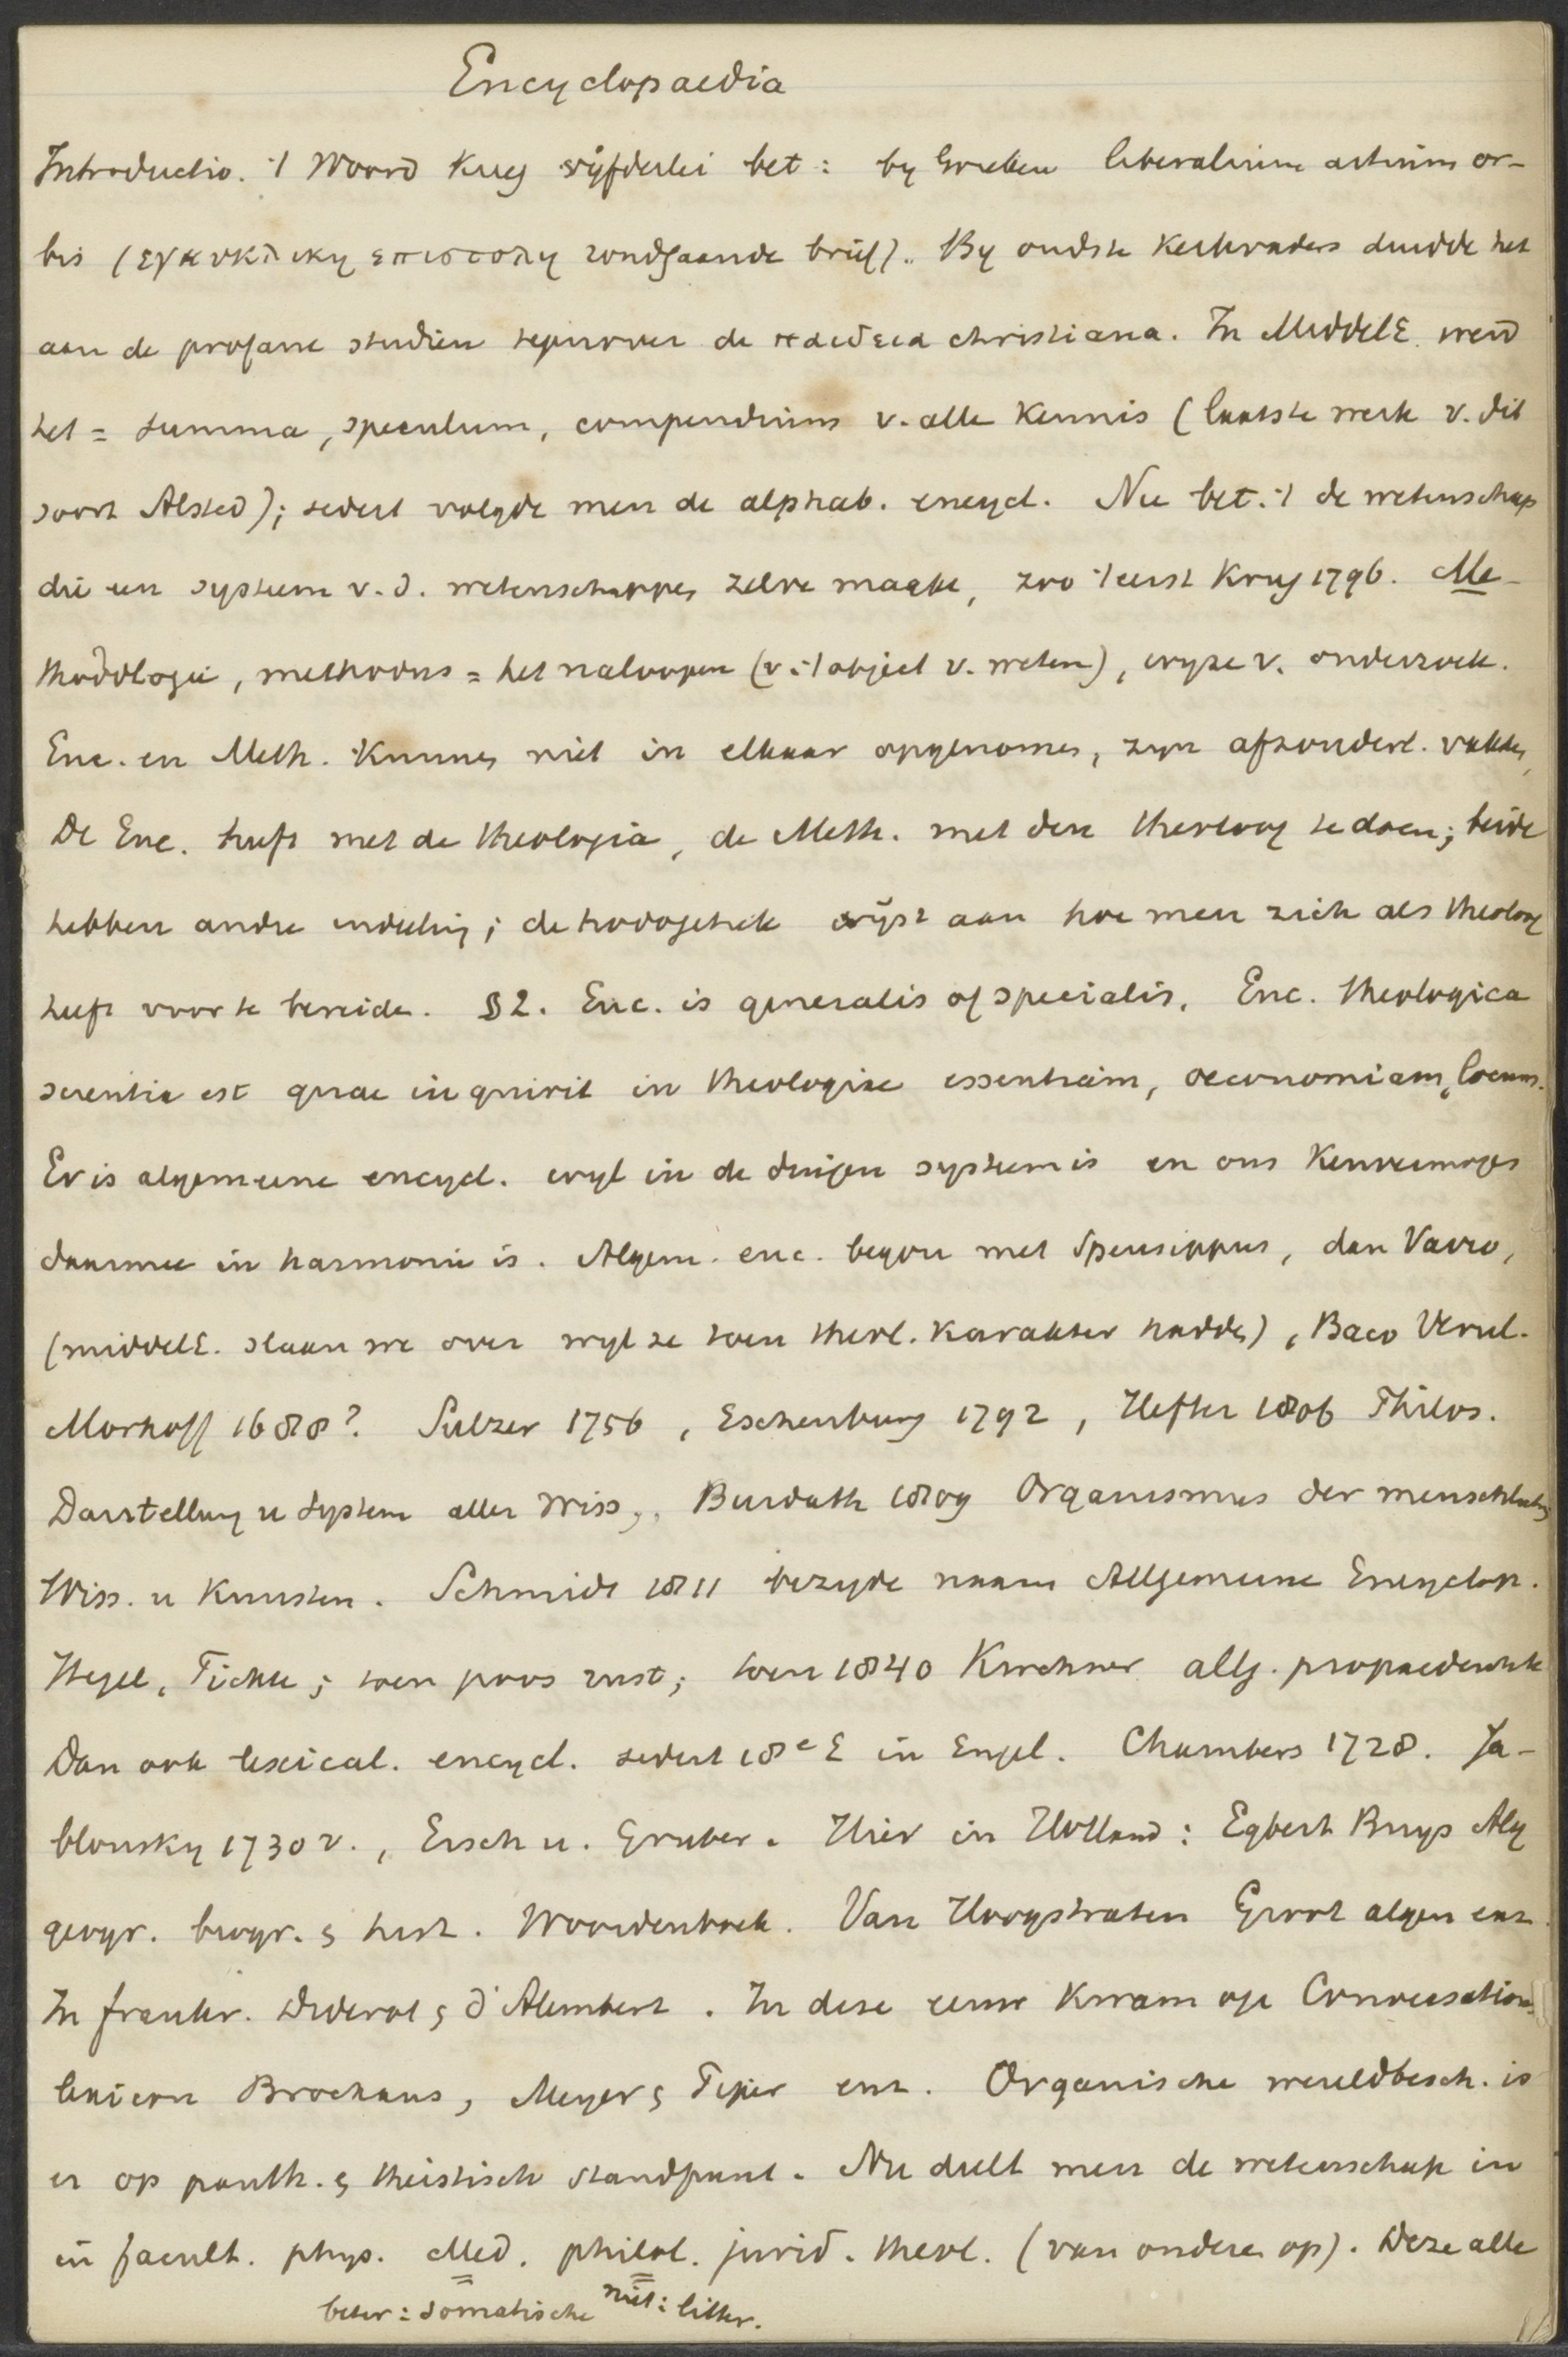 Encyclopaedia
Introductio. 't Woord kreeg vijfderlei bet: by Grieken liberalium artium or-
bis (εγκυκλικη επιστολη rondgaande brief). By oudste kerkvaders duidde het
aan de profane studien tegenover de παιδεια christiana. In MiddelE. werd
het = summa, speculum, compendium v. alle kennis (laatste werk v. dit
soort Alsted); sedert volgde men de alphab. encycl. Nu bet. 't de wetenschap
die een systeem v. d. wetenschappen zelve maakte, zoo 't eerst Krug 1796. Me-
thodologie, methodus = het naloopen (v. 't object v. weten), wyze v. onderzoek.
Enc. en Meth. kunnen niet in elkaar opgenomen, zyn afzonderl. vakken,
De Enc. heeft met de theologia, de Meth. met den theoloog te doen; beide
hebben andre indeeling; de hodogetiek wijst aan hoe men zich als theoloog
heeft voor te bereiden. § 2. Enc. is generalis of specialis. Enc. theologica
scientia est quae inquirit in theologiae essentiam, oeconomiam, locum.
Er is algemeene encycl. wyl in de dingen systeem is en ons kenvermogen
daarmee in harmonie is. Algem. enc. begon met Speusippus, dan Varro,
(middelE. slaan we over wyl ze toen theol. karakter hadden), Baco Verul.
Morhoff 1688? Sulzer 1756, Eschenburg 1792, Hefter 1806 Philos.
Darstellung u System aller Wiss., Burdach 1809 Organismus der menschlichen
Wiss. u Kunsten. Schmidt 1811 bezigde naam Allgemeine Encyclop.
Hegel, Fichte; toen poos rust; toen 1840 Kirchner allg. propaedeutik
Dan ook lexical. encycl. sedert 18e E in Engel. Chambers 1728. Ja-
blonsky 1730 v., Ersch u. Gruber. Hier in Holland: Egbert Buys Alg
geogr. biogr. & hist. Woordenboek. Van Hoogstraten Groot algem enz.
In frankr. Diderot & d'Alembert. In deze eeuw kwam op Conversations
lexicon Brockaus, Meyer & Pijer enz. Organische wereldbesch. is
er op panth. & theistisch standpunt. Nu deelt men de wetenschap in
in facult. phys. Med. philol. jurid. theol. (van onderen op). Deze alle
beter: somatische niet: litter.